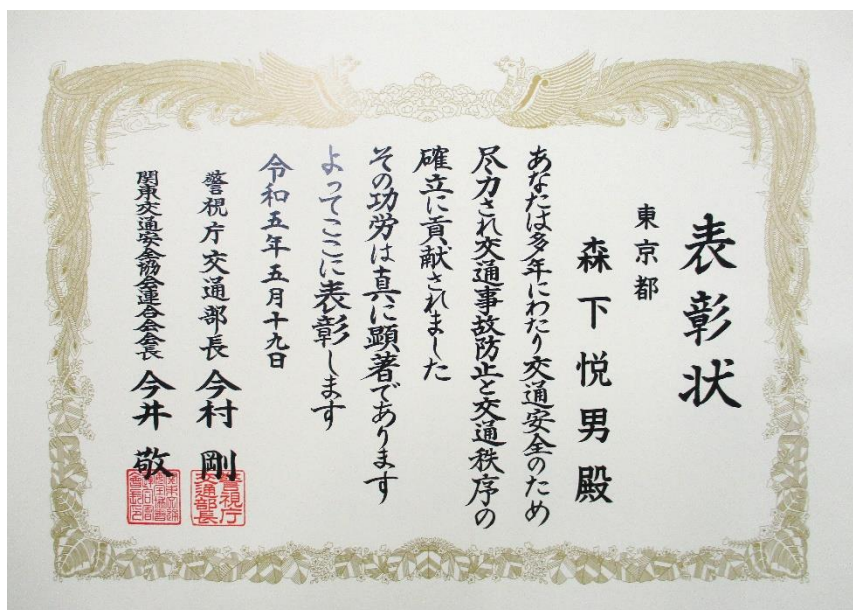 表彰状
東京都
森下悦男殿
あなたは多年にわたり交通安全のため
尽力され交通事故防止と交通秩序の
確立に貢献されました
その功労は真に顕著であります
よってここに表彰します
令和五年五月十九日
警視庁交通部長 今村剛
警視庁
交通部長
関東交通安全協会連合会会長 今井敬